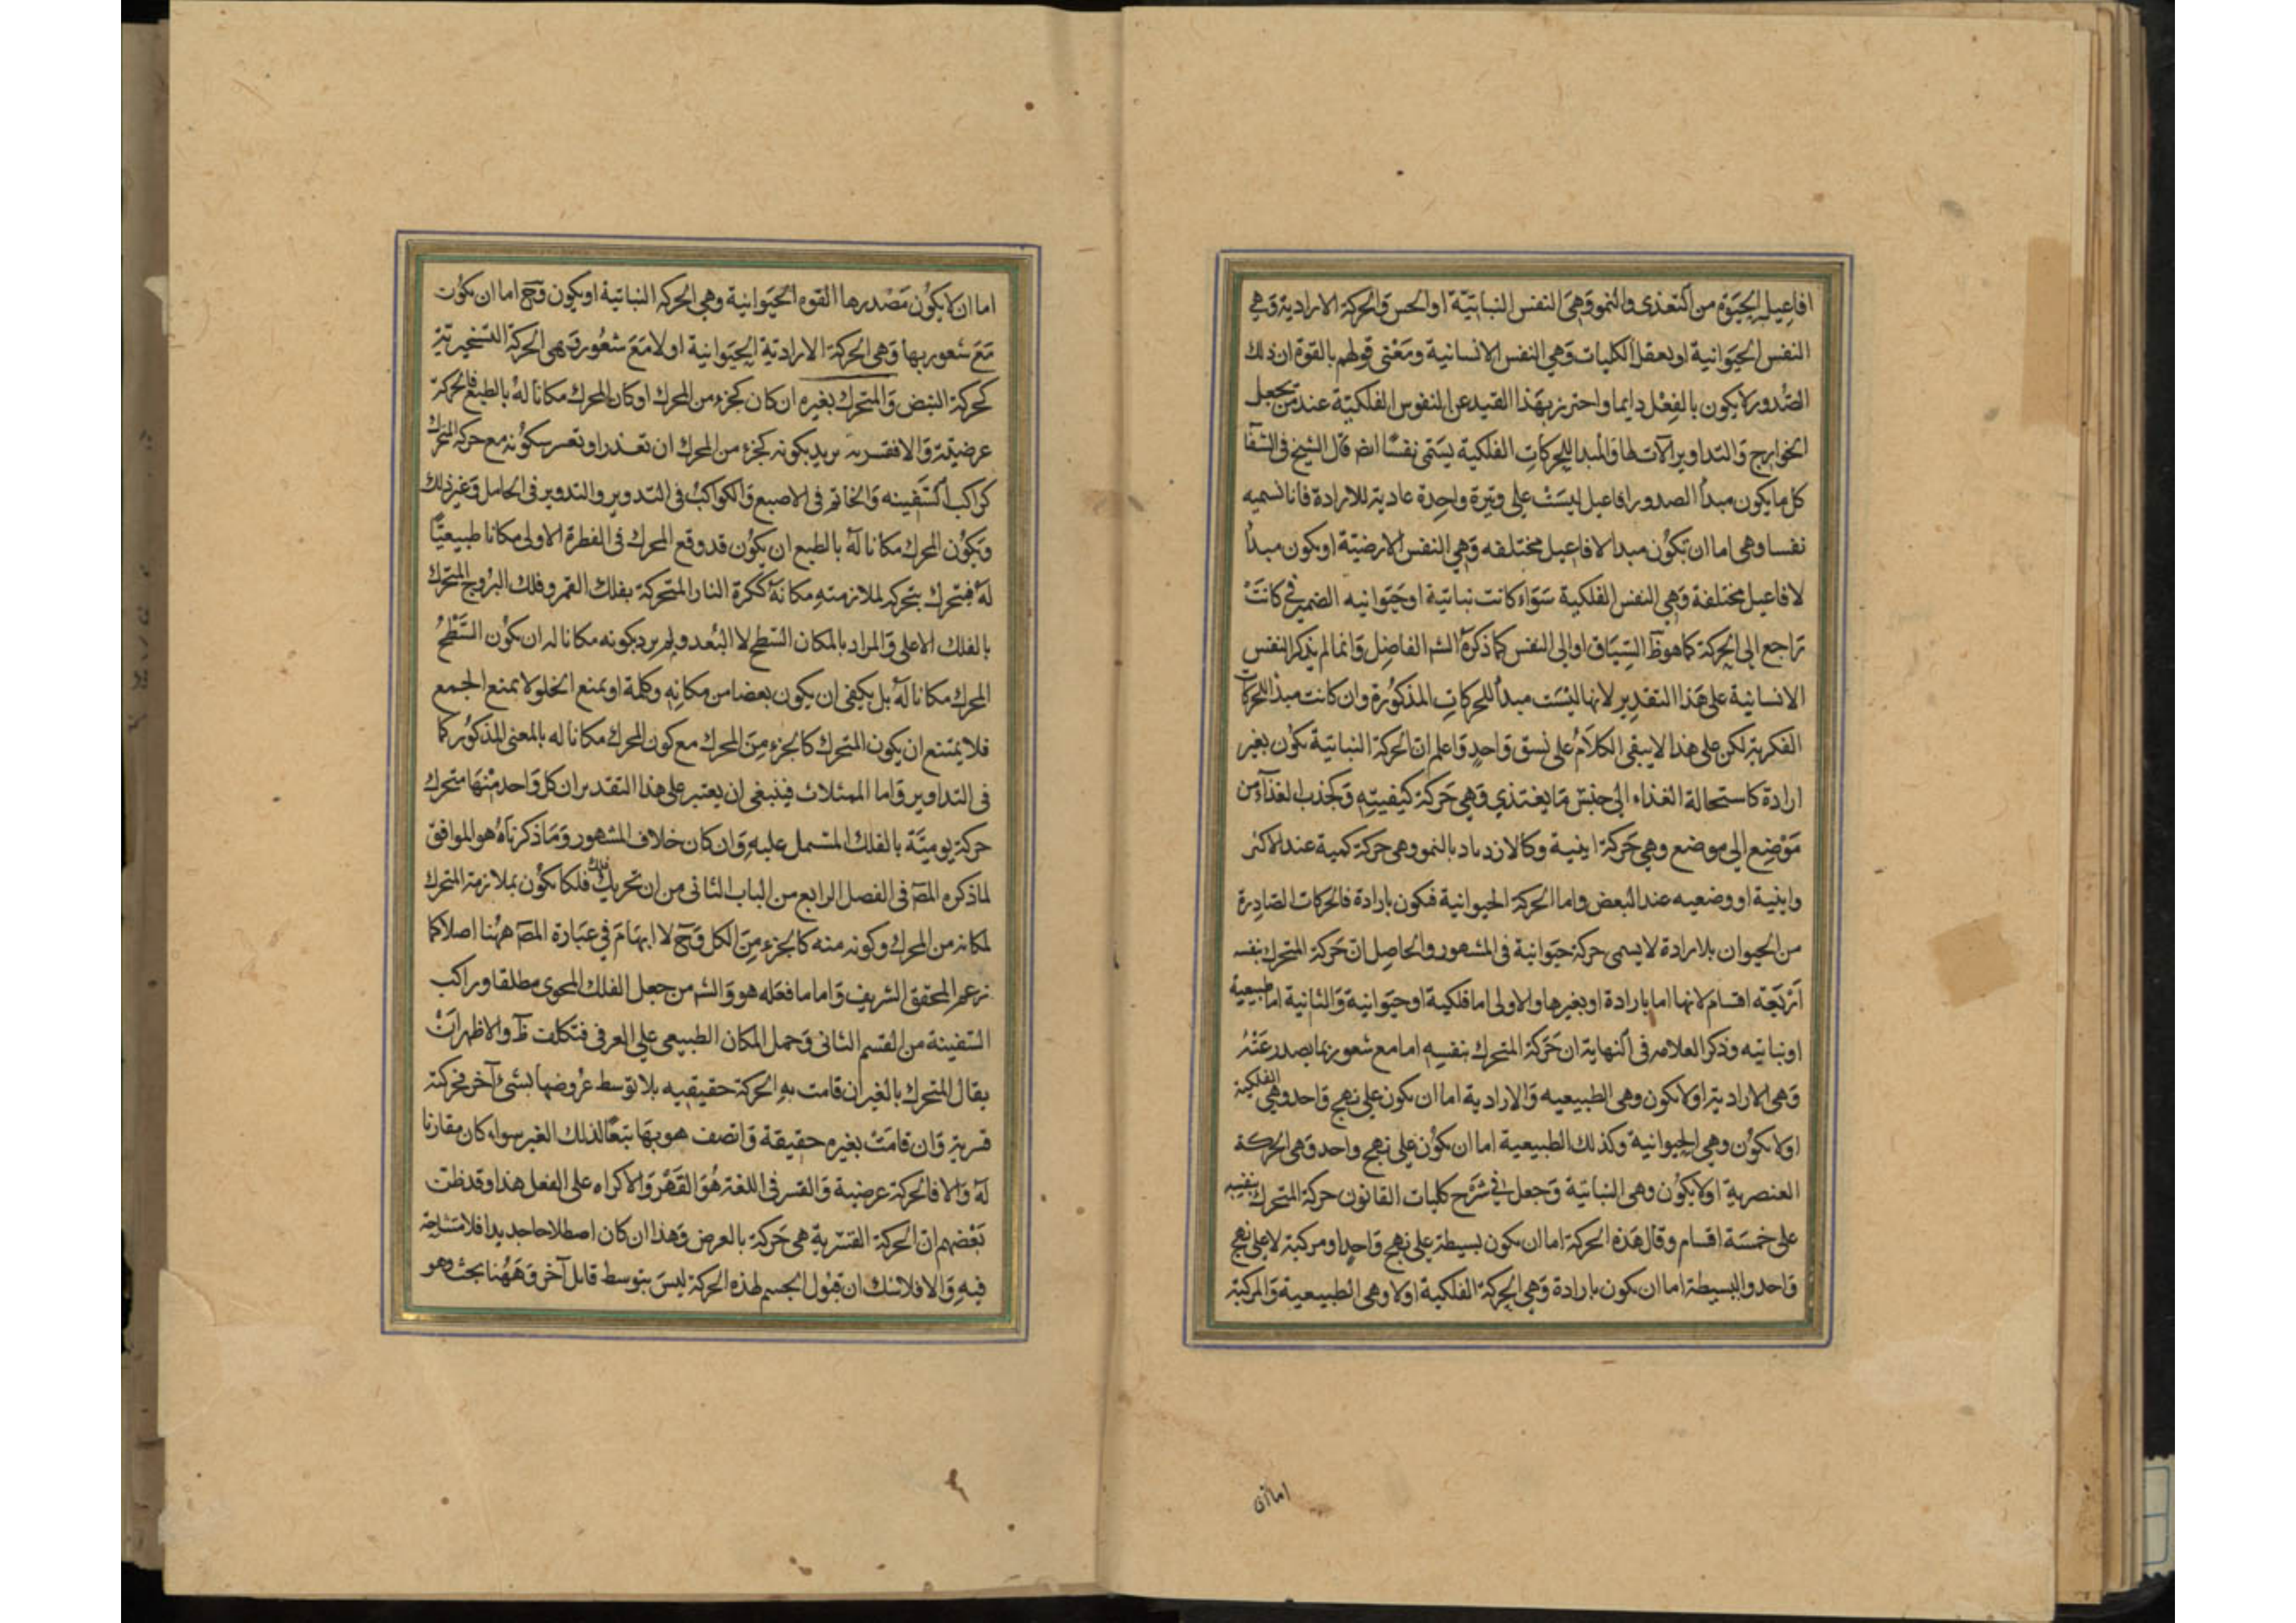 افاعيل الحيوة من التغذى والنمو وهى النفس النباتية او الحس والحركة الارادية وهي
النفس الحيوانية او بعقل الكليات وهي النفس الانسانية ومعنى قولهم بالقوة ان ذلك
الصدور لا يكون بالفعل دايما واحترز بهذا القيد عن النفوس الفلكية عند من يجعل
الخوارج والتداوير الآت لها والمبدا للحركات الفلكية يسمى نفسا ايضا قال الشيخ فى الشفا
كل ما يكون مبدأ الصدور افاعيل ليست على وتيرة واحدة عادية للارادة فانا نسميه
نفسا وهى اما ان تكون مبدا الافاعيل مختلفه وهي النفس الارضية او يكون مبدأ
لافاعيل مختلفة وهي النفس الفلكية سواء كانت نباتية او حيوانيه الضمير فى كانت
راجع الى الحركة كما هو ظ السياق او الى النفس كما ذكره الشه الفاضل وانما لم يذكر النفس
الانسانية على هذا التقدير لانها ليست مبدأ للحركات المذكورة وان كانت مبدأ للحركات
الفكرية لكن على هذا لا يبقى الكلام على نسق واحد واعلم ان الحركة النباتية تكون بغير
ارادة كاستحالة الغذاء الى جنس ما يغتذي وهي حركة كيفيته وكجذب الغذاء من
موضع الى موضع وهي حركة اينية وكالازدياد بالنمو وهى حركة كمية عند الاكثر
واينية او وضعيه عند البعض واما الحركة الحيوانية فكون بارادة فالحركات الصادرة
من الحيوان بلا ارادة لا يسمى حركة حيوانية فى المشهور والحاصل ان حركة المتحرك بنفسه
اربعة اقسام لانها اما بارادة او بغيرها والاولى اما فلكية او حيوانية والثانية اما طبيعية
او نباتيه وذكر العلامه فى النهاية ان حركة المتحرك بنفسه اما مع شعور بما يصدر عنه
وهى الارادية او لا يكون وهى الطبيعيه والارادية اما ان يكون على نهج واحد وهي الفلكية
او لا يكون وهي الحيوانية وكذلك الطبيعية اما ان يكون على نهج واحد وهى الحركة
العنصرية او لا يكون وهى النباتية وجعل فى شرح كليات القانون حركة المتحرك بنفسه
على خمسة اقسام وقال هذه الحركة اما ان يكون بسيطة على نهج واحد او مركبة لا على نهج
واحد والبسيطة اما ان يكون بارادة وهي الحركة الفلكية او لا وهى الطبيعية والمركبة
اما ان
اما ان لا يكون مصدرها القوه الحيوانية وهي الحركه النباتية او يكون وح اما ان يكون
مع شعور بها وهى الحركة الارادية الحيوانية او لا مع شعور وهى الحركة التسخيرية
كحركة النبض والمتحرك بغيره ان كان كجزء من المحرك او كان المحرك مكانا له بالطبع فالحركة
عرضية والا فقسرية يريد بكونه كجزء من المحرك ان تعذر او تعسر سكونه مع حركة المحرك
كراكب السفينه والخاتم فى الاصبع والكواكب فى التدوير والتدوير فى الحامل وغير ذلك
ويكون المحرك مكانا له بالطبع ان يكون قد وقع المحرك فى الفطرة الاولى مكانا طبيعيا
له فيتحرك بتحركه لملازمته مكانه ككرة النار المتحركة بفلك القمر وفلك البروج المتحرك
بالفلك الاعلى والمراد بالمكان السطح لا البعد ولم يرد بكونه مكانا له ان يكون السطح
المحرك مكانا له بل يكفى ان يكون بعضا من مكانه وكلمة او بمنع الخلو لا بمنع الجمع
فلا يمتنع ان يكون المتحرك كالجزء من المحرك مع كون المحرك مكانا له بالمعنى المذكور كما
فى التداوير واما الممثلات فينبغى ان يعتبر على هذا التقدير ان كل واحد منها متحرك
حركة يومية بالفلك المشتمل عليه وان كان خلاف المشهور وما ذكرناه هو الموافق
لما ذكره المص فى الفصل الرابع من الباب الثانى من ان تحريك فلك فلكا يكون بملازمة المتحرك
لمكانه من المحرك وكونه منه كالجزء من الكل وح لا ابهام في عبارة المص ههنا اصلا كما
زعم المحقق الشريف واما ما فعله هو والشه من جعل الفلك المحوى مطلقا وراكب
السفينة من القسم الثانى وحمل المكان الطبيعى على العرفى فتكلف ظ والاظهر ان
يقال المتحرك بالغير ان قامت به الحركة حقيقيه بلا توسط عروضها بشىء آخر فحركته
قسرية وان قامت بغيره حقيقة واتصف هو بها تبعا لذلك الغير سواء كان مقارنا
له والا فالحركة عرضية والقسر فى اللغة هو القهر والاكراه على الفعل هذا وقد ظن
بعضهم ان الحركة القسرية هى حركة بالعرض وهذا ان كان اصطلاحا جديدا فلا مشاحة
فيه والا فلا شك ان قبول الجسم لهذه الحركة ليس بتوسط قابل آخر وههنا بحث وهو